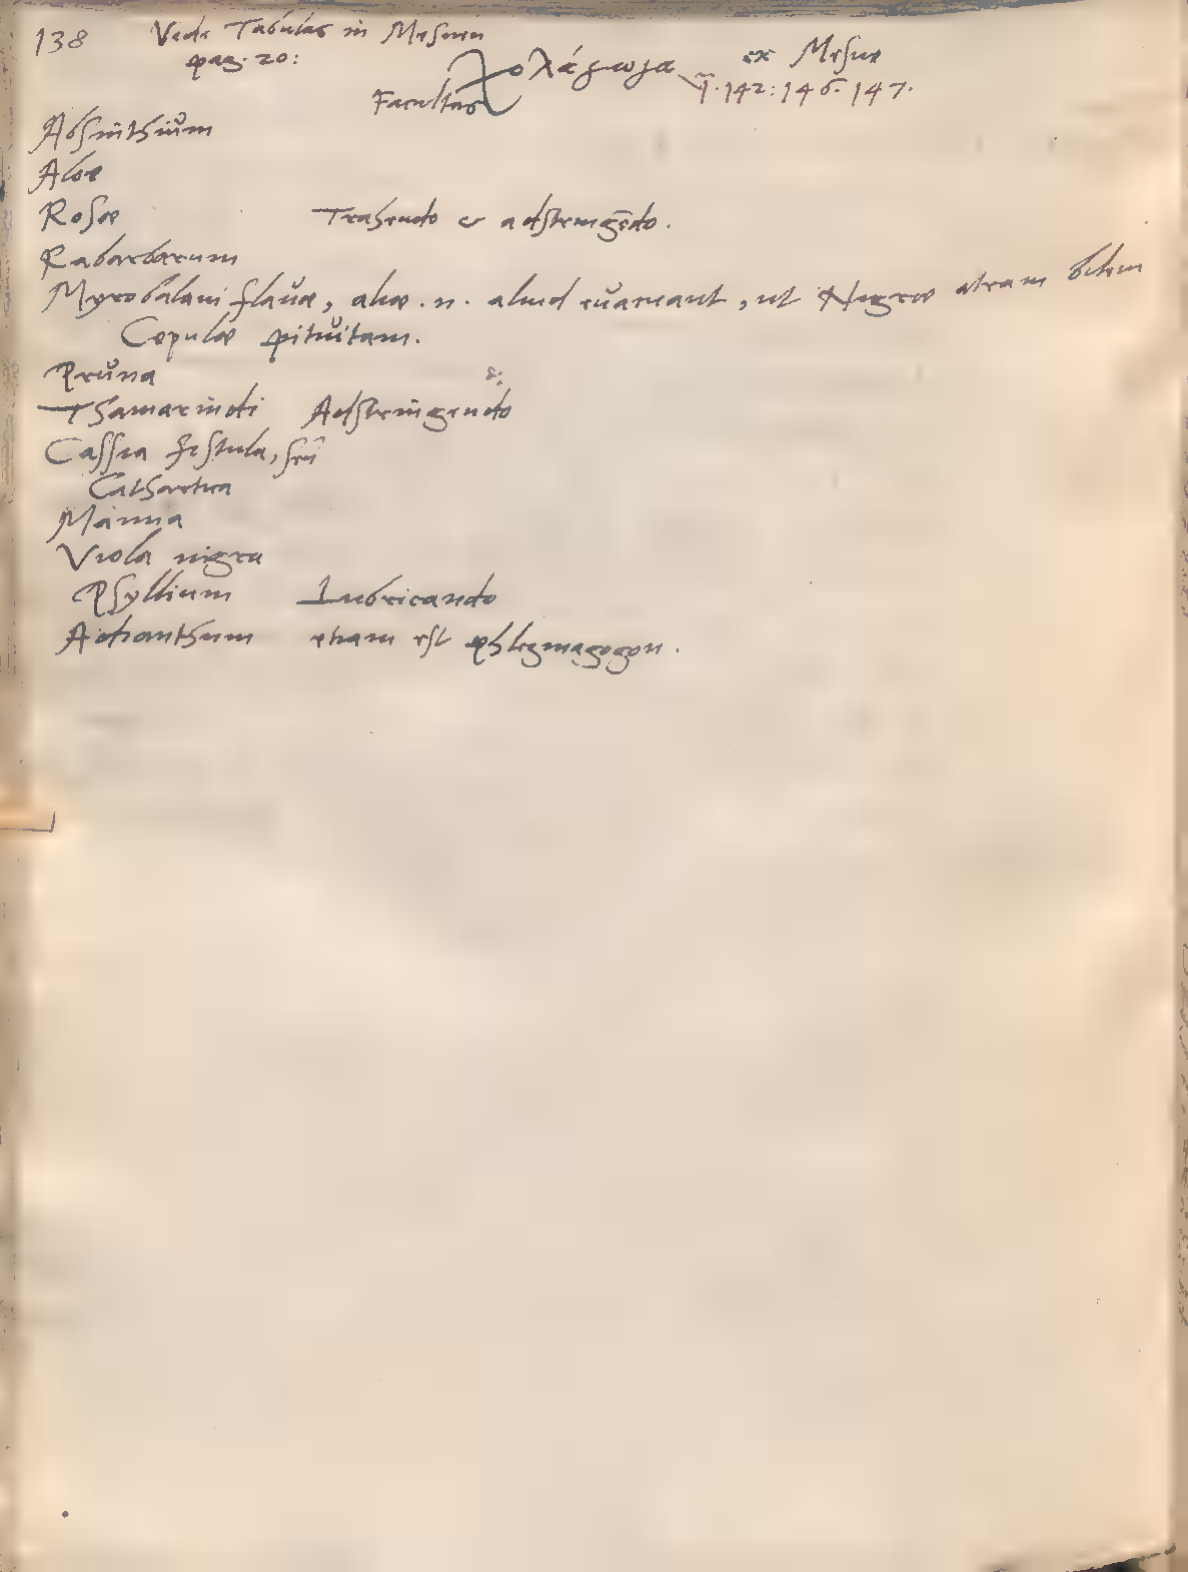 138 Vide Tabulas in Mesuen
pag. 20:
Χολάγωγα ex Mesue
Facultas f. 142: 146. 147.
Absinthiŭm
Aloe
Rosæ Trahendo & adstringēdo.
Rabarbarum
Myrobalani flaŭæ, aliæ .n. aliud eŭacuant, ut Nigræ atram bilem
Cepulæ pitŭitam.
Prŭna
Thamarindi Adstringendo
Cassia fistula, seŭ
Cathartica
Manna
Viola nigra
Psyllium Lubricando
Adianthum etiam est phlegmagogon.